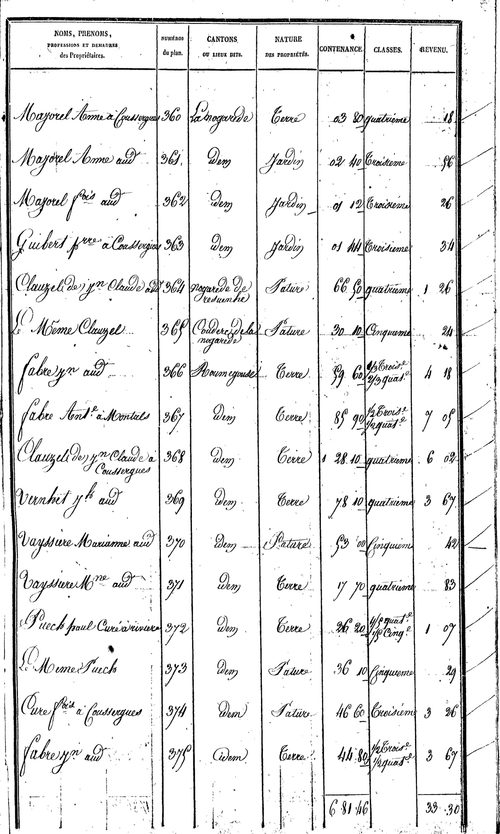 NOMS, PRENOMS, PROFESSIONS ET DEMEURES des Propriétaires. | NUMÉROS du plan. | CANTONS OU LIEUX DITS. | NATURE DES PROPRIÉTÉS. | CONTENANCE. | CLASSES. | REVENU.
Majorel Anne à Coussergues 360 La nogarede Terre 03 80 quatrieme 18
Majorel Anne aud 361 idem Jardin 02 40 Troisieme 56
Majorel fois aud 362 idem Jardin 01 12 Troisieme 26
Guibert pre à Coussergues 363 idem Jardin 01 44 Troisieme 34
Clauzel de) jn Claude aud 364 nogarede de Pature 66 50 quatrieme 1 26
Le Même Clauzel 365 Couderc de la nogarede Pature 30 10 Cinquieme 24
fabre jn aud 366 Roumegouse Terre 59 60 1/3 Trois.e 2/3 quat.e 4 18
fabre Ant.e à Montals 367 idem Terre 85 90 1/2 Trois.e 1/2 quat.e 7 05
Clauzel de) jn Claude à Coussergues 368 idem Terre 1 28 10 quatrieme 6 02
Vernhet jh aud 369 idem Terre 78 10 quatrieme 3 67
Vayssiere Marianne aud 370 idem Pature 53 00 Cinquiem 42
Vayssiere Mne aud 371 idem Terre 17 70 quatrieme 83
Puech paul Curé à riviere 372 idem Terre 26 20 quat.e Cinq.e 1 07
Le Meme Puech 373 idem Pature 36 10 Cinquieme 29
Cure fois à Coussergues 374 idem Pature 46 60 Troisieme 3 26
fabre jn aud 375 idem Terre 44 80 1/2 Trois.e 1/2 quat.e 3 67
6 81 46 33 30